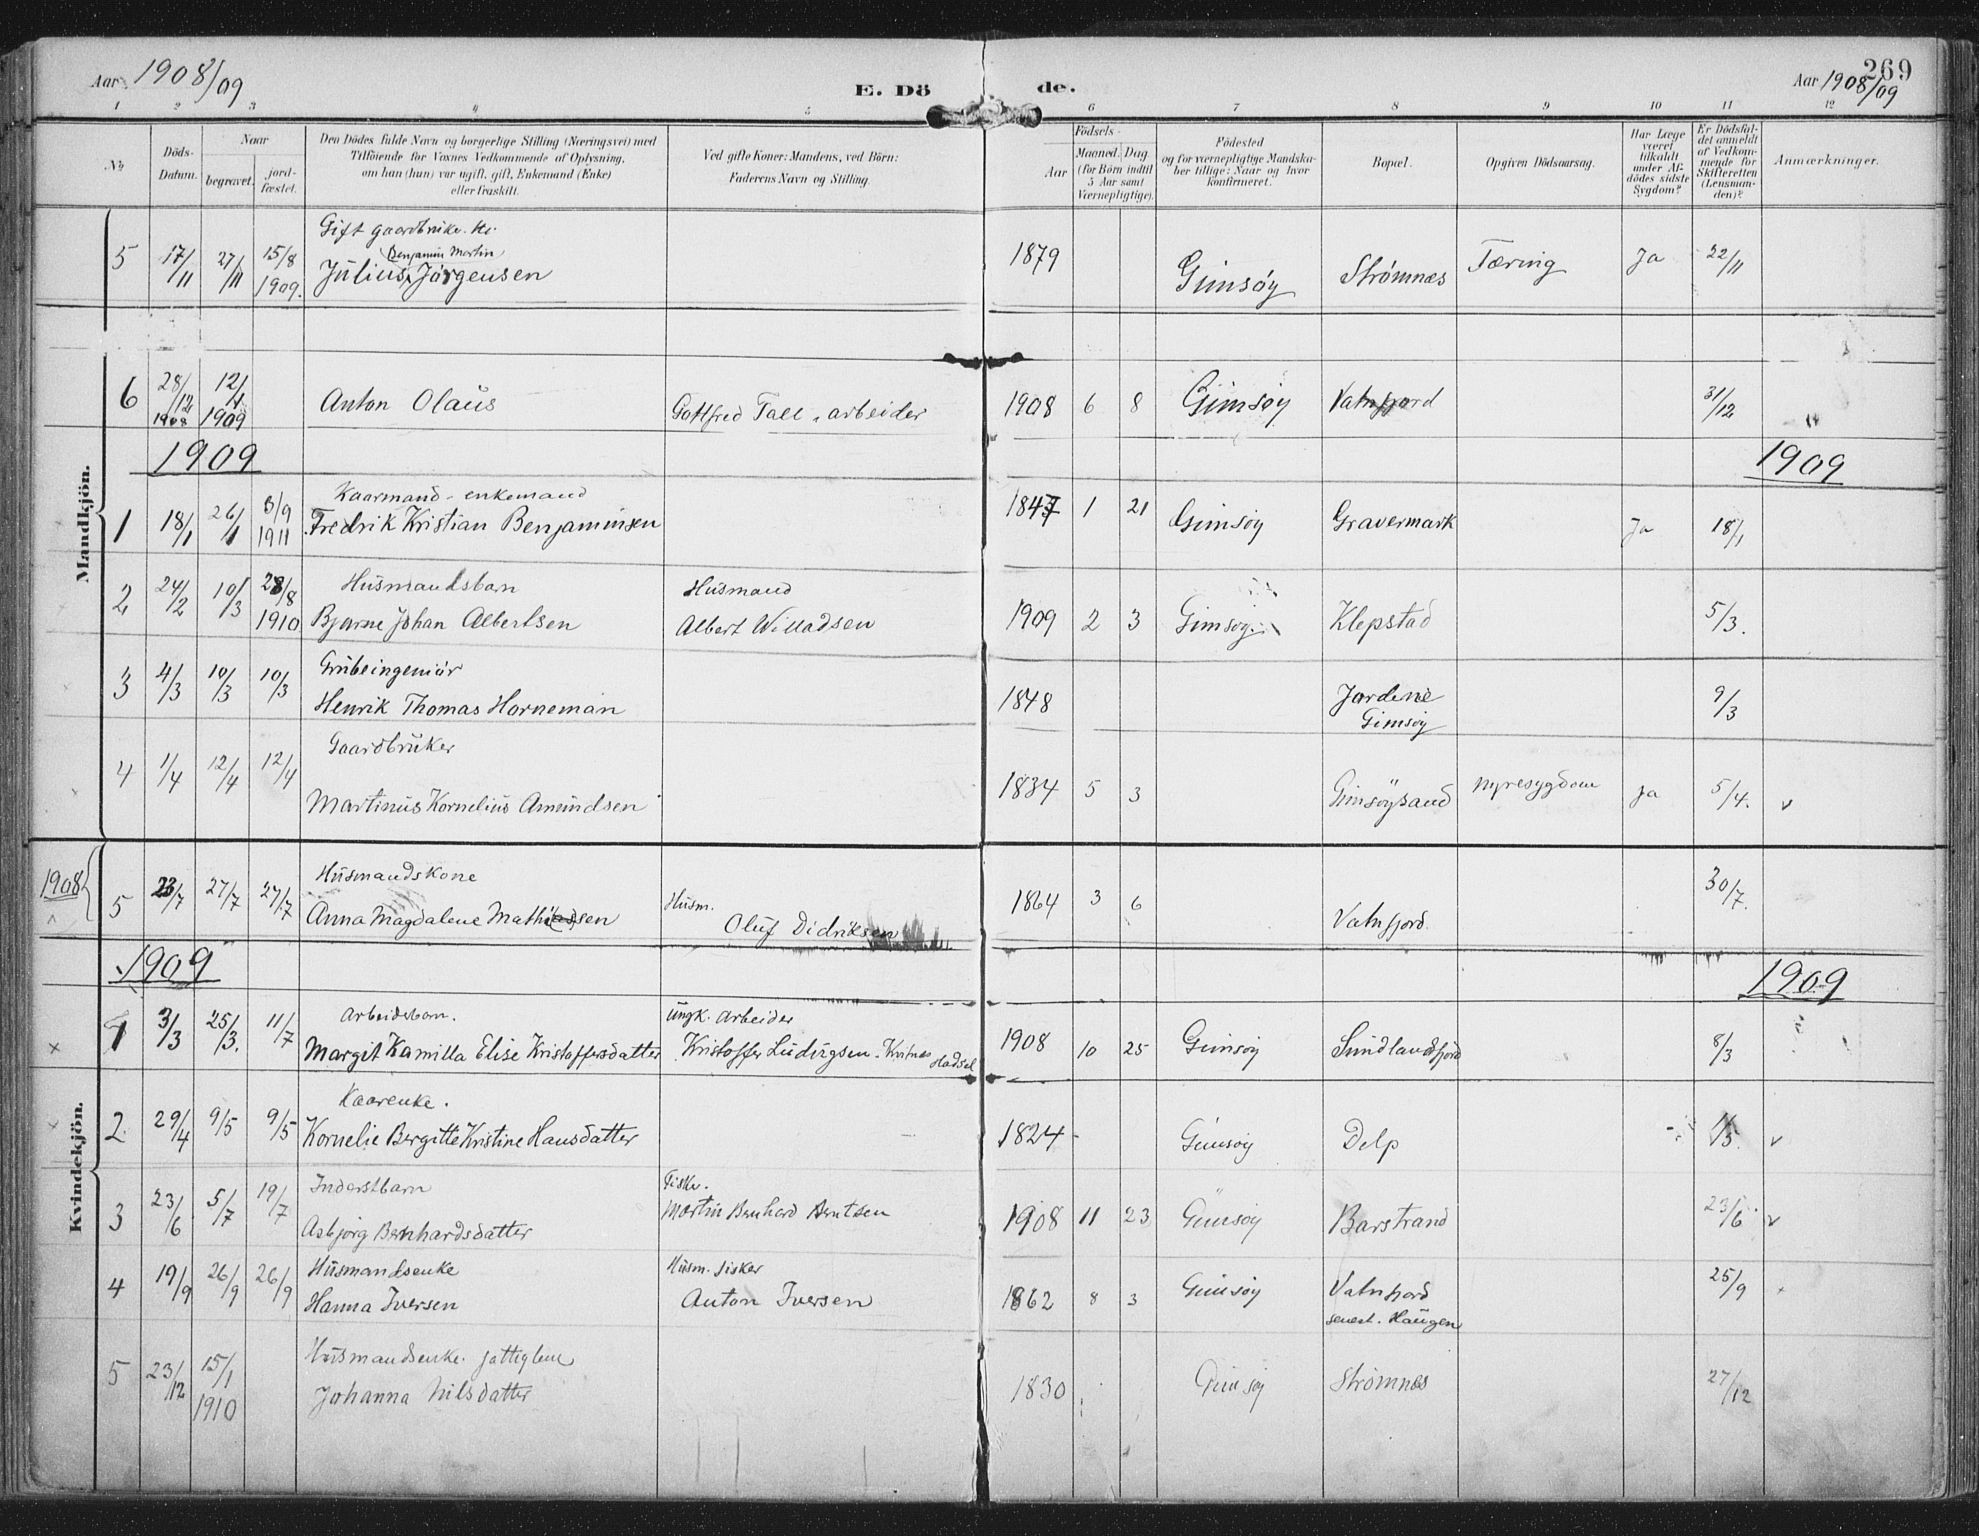 269
Aar 1908/09
E. Dö de.
Aar 1908/09
1 2 3 4 5 6 7 8 9 10 11 12
No
Döds-Datum.
Naar
begravet.
jord-fæstet.
Den Dödes fulde Navn og borgerlige Stilling (Næringsvei) med
Tilföiende for Voxnes Vedkommende af Oplysning,
om han (hun) var ugift, gift, Enkemand (Enke)
eller fraskilt.
Ved gifte Koner: Mandens, ved Börn:
Faderens Navn og Stilling.
Födsels-
Aar
Maaned. Dag
(for Börn indtil
5 Aar samt
Værnepligtige).
Födested
og for værnepligtige Mandska-
ber tillige: Naar og hvor
konfirmeret.
Bopæl.
Opgiven Dödsaarsag.
Har Læge
været
tilkaldt
under Af-
dödes sidste
Sygdom?
Er Dödsfal-
det anmeldt
af Vedkom-
mende for
Skifteretten
(Lensman-
den)?
Anmærkninger.
Mandkjön.
Gift gaardbruker
Benjamin Martin
5 17/11 27/11 15/8 1909. Julius Jørgensen 1879 Gimsøy Strømnæs Tæring Ja 22/11
6 28/12 1908 12/4 1909 Anton Olaus Gottfred Tall, arbeider 1908 6 8 Gimsøy Vatnfjord 31/12
1909 1909
Kaarmand - enkemand
1 18/1 26/1 3/9 1911 Fredrik Kristian Benjaminsen 1847 1 21 Gimsøy Gravermark Ja 18/1
Husmandsbarn Husmand
2 24/2 10/3 28/8 1910 Bjarne Johan Albertsen Albert Willadsen 1909 2 3 Gimsøy Klepstad 5/3.
Grubeingeniør
3 4/3 10/3 10/3 Henrik Thomas Horneman 1848 Jordene Gimsøy 9/3
Gaardbruker
4 1/4 12/4 12/4 Martinus Kornelius Amundsen 1834 5 3 Gimsøysand nyresygdom Ja 5/4. v
1908
Husmandskone
5 23/7 27/7 27/7 Anna Magdalene Mathiassen Husm. Oluf Didriksen 1864 3 6 Vatnfjord. 30/7.
1909 1909
Kvindekjön.
Arbeidsbarn. Ungk. Arbeider
x 1 3/3 25/3. 11/7 Margit Kamilla Elise Kristoffersdatter Kristoffer Ludvigsen. Hadsel 1908 10 25 Gimsøy Sundlandsfjord 8/3
Kaarenke.
x 2 29/4 9/5 9/5 Kornelie Bergitte Kristine Hansdatter 1824 - Gimsøy Delp v
Inderstbarn Fisker.
3 23/6 5/7 19/7 Asbjørg Bernhardsdatter Martin Bernhard Berntsen 1908 11 23 Gimsøy Barstrand 23/6. v
Husmandsenke Husm. fisker
4 19/9 26/9 26/9 Hanna Iversen Anton Iversen 1862 8 3 Gimsøy Vatnfjord senest. Haugen 25/9
Husmandsenke. fattiglem
5 23/12 15/1 1910 Johanna Nilsdatter 1830 Gimsøy Strømnæs 27/12